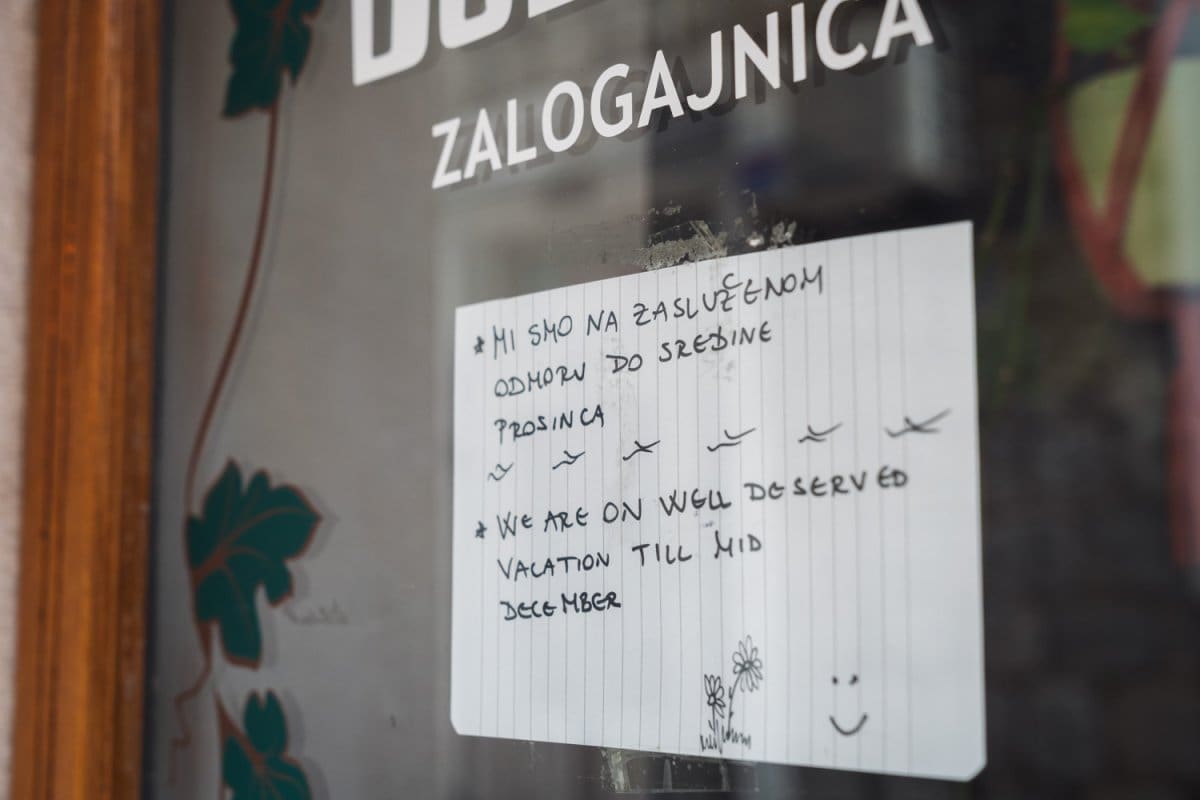 ZALOGAJNICA
* MI SMO NA ZASLUŽENOM
ODMORU DO SREDINE
PROSINCA
* WE ARE ON WELL DESERVED
VACATION TILL MID
DECEMBER